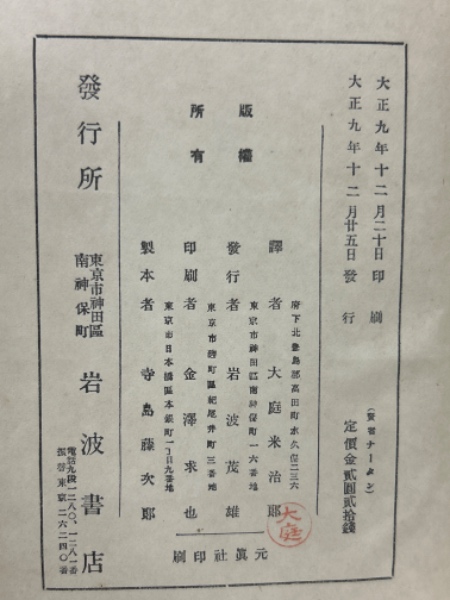 大正九年十二月二十日印刷
大正九年十二月廿五日發行
(賢者ナータン)
定價金貳圓貳拾錢
版權
所有
府下北豊島郡高田町水久保二三六
譯者 大庭米治郎
大庭
東京市神田區南神保町一六番地
發行者 岩波茂雄
東京市麹町區紀尾井町三番地
印刷者 金澤求也
東京市日本橋區本銀町一ノ九番地
製本者 寺島藤次郎
元眞社印刷
發行所
東京市神田區
南神保町
岩波書店
電話九段一二八〇、一二八一番
振替東京二六二四〇番